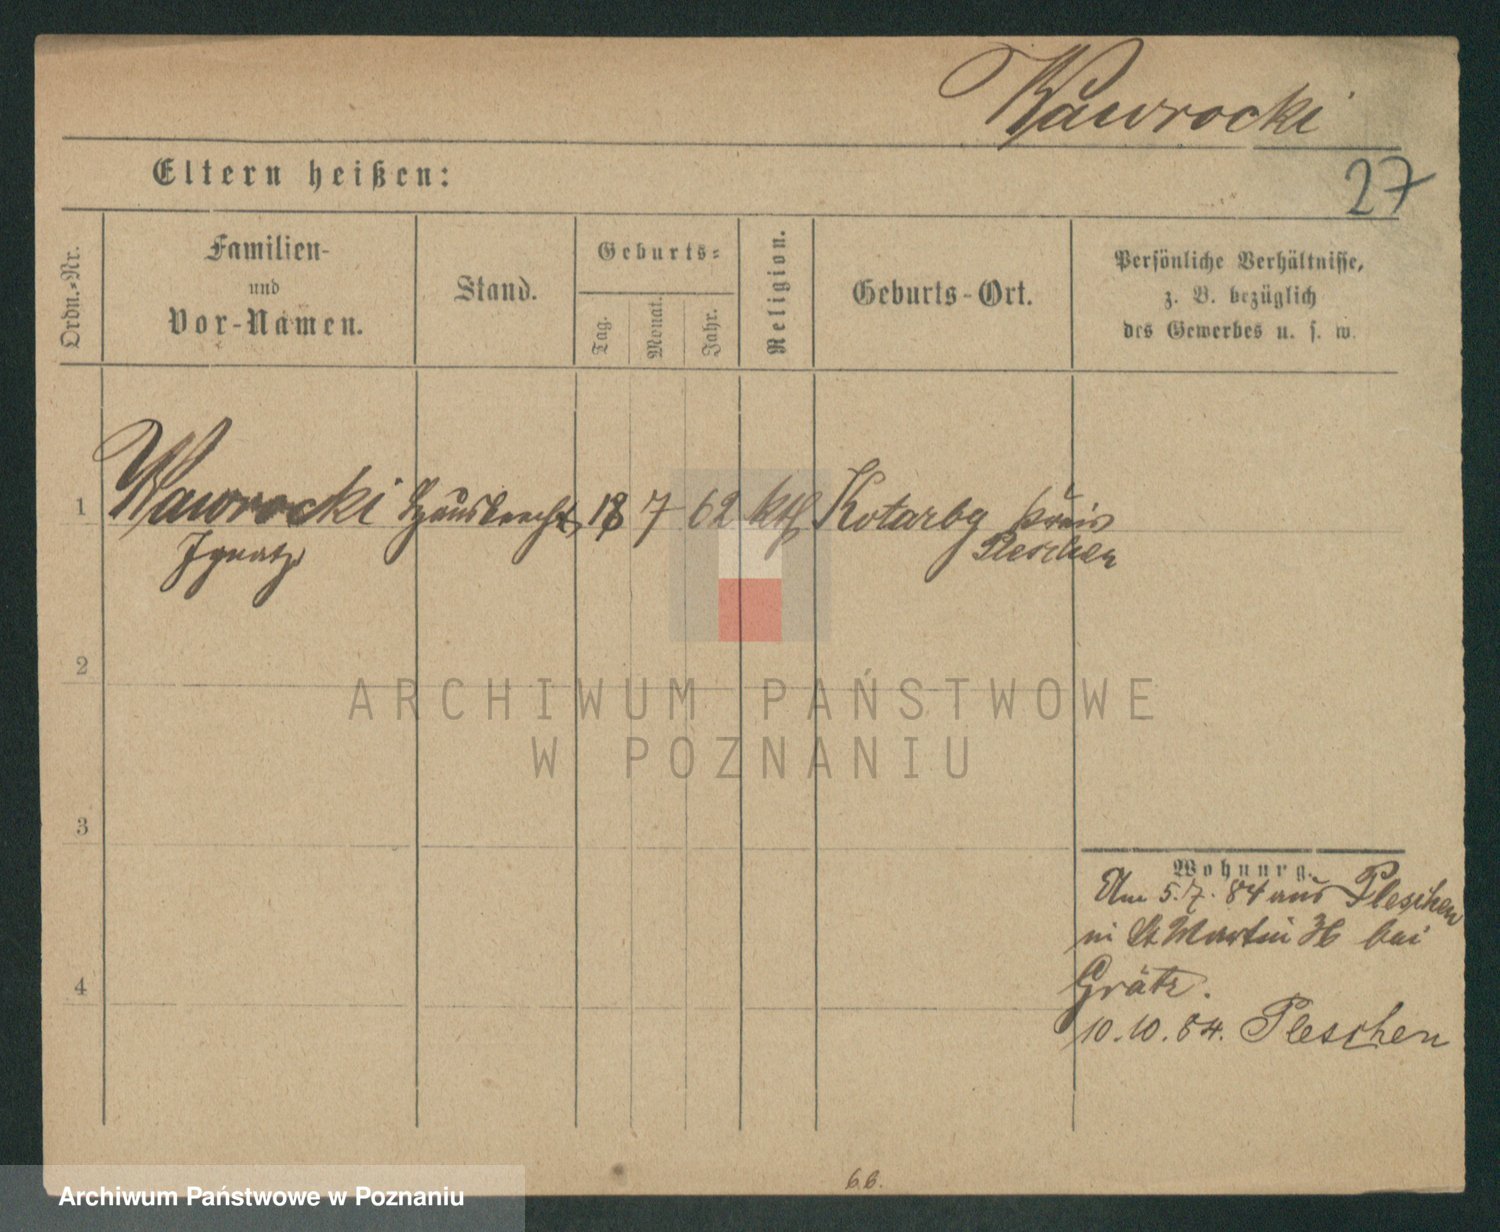 Wawrocki
27
Eltern heißen:
Ordn.-Nr.
Familien-
und
Vor-Namen.
Stand.
Geburts-
Tag.
Monat.
Jahr.
Religion.
Geburts-Ort.
Persönliche Verhältnisse,
z. B. bezüglich
des Gewerbes u. s. w.
1 Wawrocki Hausknecht 18 7 62 kth Kotarby Kreis
Ignatz Pleschen
2
ARCHIWUM PAŃSTWOWE
W POZNANIU
3
Wohnung.
Am 5.7.84 aus Pleschen
in St Martin 36 bei
Grätz.
4
10.10.84. Pleschen
66.
Archiwum Państwowe w Poznaniu